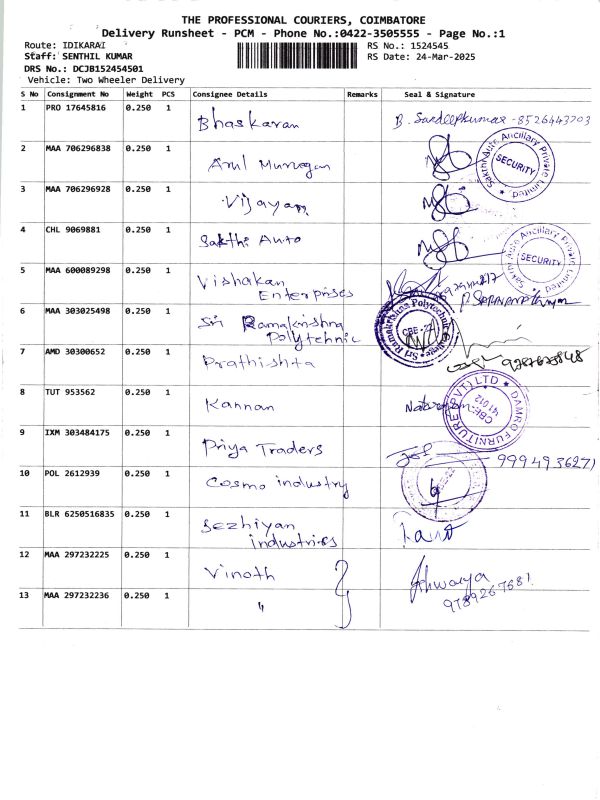 THE PROFESSIONAL COURIERS, COIMBATORE
Delivery Runsheet - PCM - Phone No.:0422-3505555 - Page No.:1
Route: IDIKARAI
RS No.: 1524545
Staff: SENTHIL KUMAR
RS Date: 24-Mar-2025
DRS No.: DCJB152454501
Vehicle: Two Wheeler Delivery
S No Consignment No Weight PCS Consignee Details Remarks Seal & Signature
1 PRO 17645816 0.250 1 Bhaskaran B. Sandeepkumar - 8526443703
2 MAA 706296838 0.250 1 Arul Murugan
Sakthi Auto Ancillary Private Limited
SECURITY
3 MAA 706296928 0.250 1 Vijayan
4 CHL 9069881 0.250 1 Sakthi Auto
Sakthi Auto Ancillary Private Limited
SECURITY
5 MAA 600089298 0.250 1 Vishakan
Enterprises
6 MAA 303025498 0.250 1 Sri Ramakrishna
Polytehnic
Sri Ramakrishna Polytechnic College
CBE-22
7 AMD 30300652 0.250 1 Prathishta
8 TUT 953562 0.250 1 Kannan Natarajan
DAMRO FURNITURE (PVT) LTD
CBE-
641 012
9 IXM 303484175 0.250 1 Priya Traders 9994936271
10 POL 2612939 0.250 1 Cosmo industry
11 BLR 6250516835 0.250 1 Sezhiyan
industries
12 MAA 297232225 0.250 1 Vinoth Ishwarya
9789267681
13 MAA 297232236 0.250 1 "